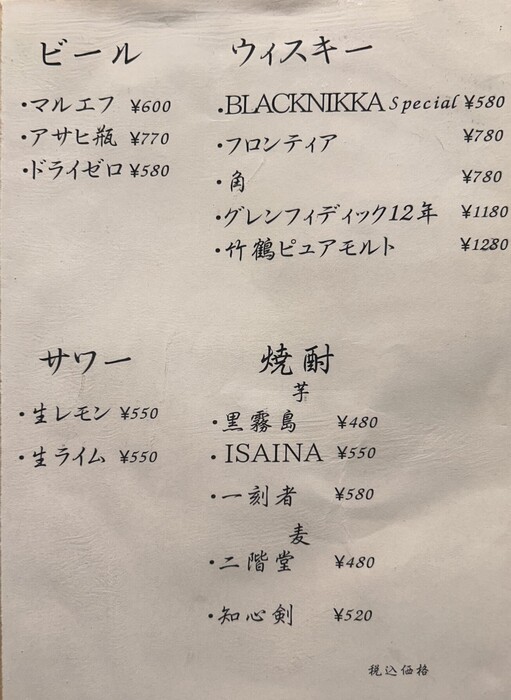 ビール
・マルエフ ¥600
・アサヒ瓶 ¥770
・ドライゼロ ¥580
ウィスキー
・BLACKNIKKA Special ¥580
・フロンティア ¥780
・角 ¥780
・グレンフィディック12年 ¥1180
・竹鶴ピュアモルト ¥1280
サワー
・生レモン ¥550
・生ライム ¥550
焼酎
芋
・黒霧島 ¥480
・ISAINA ¥550
・一刻者 ¥580
麦
・二階堂 ¥480
・知心剣 ¥520
税込価格